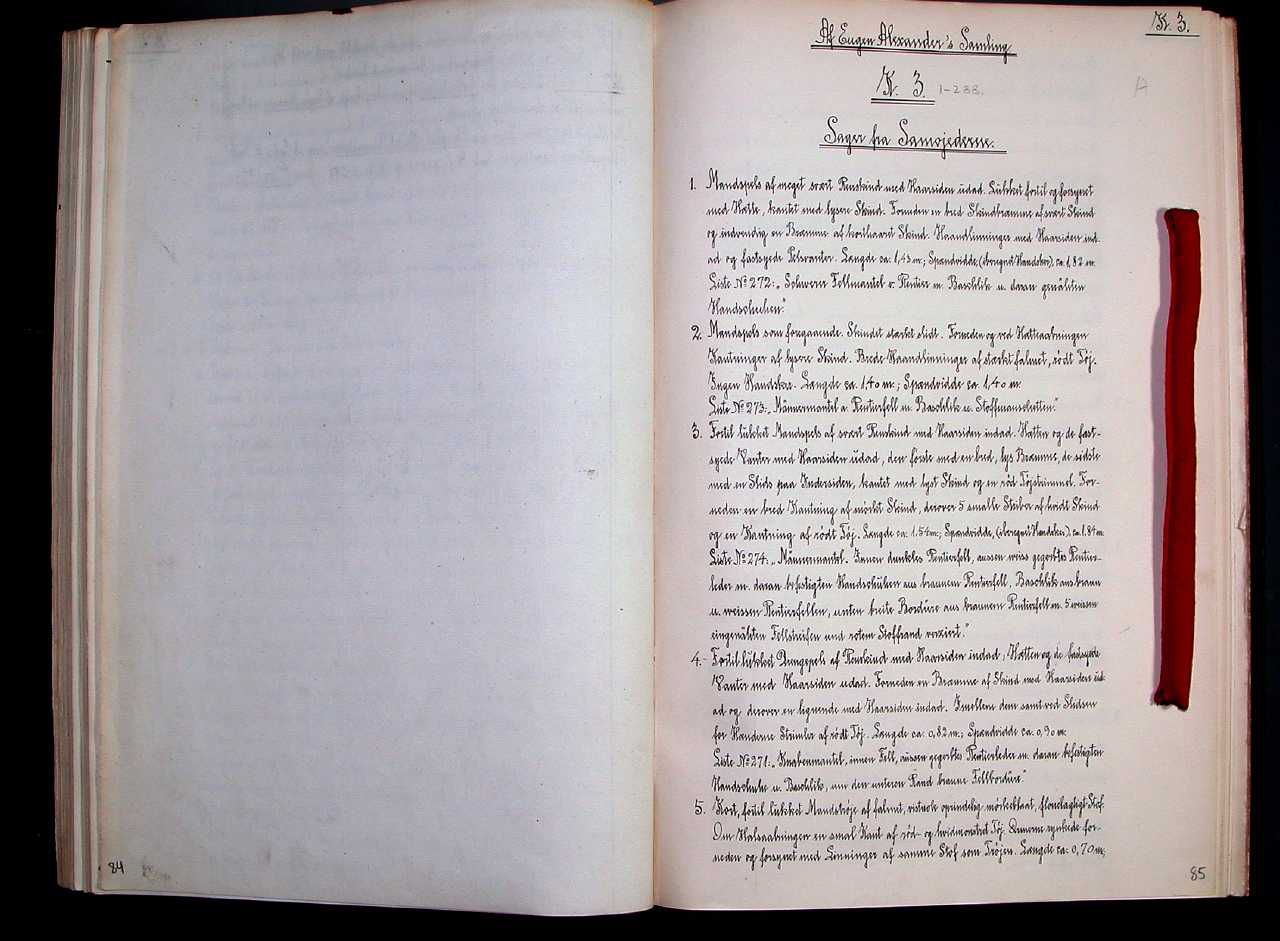 84
K. 3.
Af Eugen Alexander's Samling
K. 3. 1-288.
A
Sager fra Samojederne.
1. Mandspels af meget svært Renskind med Haarsiden udad. Lukket fortil og forsynet
med Hætte, kantet med lysere Skind. Forneden en bred Skindbræmme af svært Skind
og indvendig en Bræmme af korthaaret Skind. Haandlinninger med Haarsiden ind-
ad og fastsyede Pelsvanter. Længde ca. 1,43 m; Spændvidde, (iberegnet Handsker), ca. 1,82 m.
Liste No 272: „Schwerer Fellmantel v. Rentier m. Baschlik u. daran genähten
Handschuhen."
2. Mandspels som foregaaende. Skindet stærkt slidt. Forneden og ved Hætteaabningen
Kantninger af lysere Skind. Brede Haandlinninger af stærkt falmet, rödt Töj.
Ingen Handsker. Længde ca. 1,40 m.; Spændvidde ca. 1,40 m.
Liste No 273: „Männermantel a. Rentierfell m. Baschlik u. Stoffmanschetten."
3. Fortil lukket Mandspels af svært Renskind med Haarsiden indad. Hætten og de fast-
syede Vanter med Haarsiden udad, den förste med en bred, lys Bræmme, de sidste
med en Slids paa Indersiden, kantet med lyst Skind og en röd Töjstrimmel. For-
neden en bred Kantning af mörkt Skind, derover 5 smalle Striber af hvidt Skind
og en Kantning af rödt Töj. Længde ca. 1.54 m; Spændvidde, (iberegnet Handsker), ca. 1.84 m.
Liste No 274: „Männermantel. Innen dunkles Rentierfell, aussen weiss gegerbtes Rentier-
leder m. daran befestigten Handschuhen aus braunem Rentierfell, Baschlik aus braun
u. weissen Rentierfellen, unten breite Bordüre aus braunem Rentierfell m. 5 weissen
eingenähten Fellstreifen und rotem Stoffrand verziert."
4. Fortil lukket Drengepels af Renskind med Haarsiden indad; Hætten og de fastsyede
Vanter med Haarsiden udad. Forneden en Bræmme af Skind med Haarsiden ud-
ad og derover en lignende med Haarsiden indad. Imellem dem samt ved Slidsen
for Hænderne Strimler af rödt Töj. Længde ca. 0,82 m.; Spændvidde ca. 0,90 m.
Liste No 271: „Knabenmantel, innen Fell, aussen gegerbtes Rentierleder m. daran befestigten
Handschuhe u. Baschlik, um den unteren Rand braune Fellbordüre."
5. Kort, fortil lukket Mandströje af falmet, vistnok oprindelig mörkeblaat, flonelagtigt Stof.
Om Halsaabningen en smal Kant af röd- og hvidmönstret Töj. Ærmerne rynkede for-
neden og forsynet med Linninger af samme Stof som Tröjen. Længde ca: 0,70 m;
85